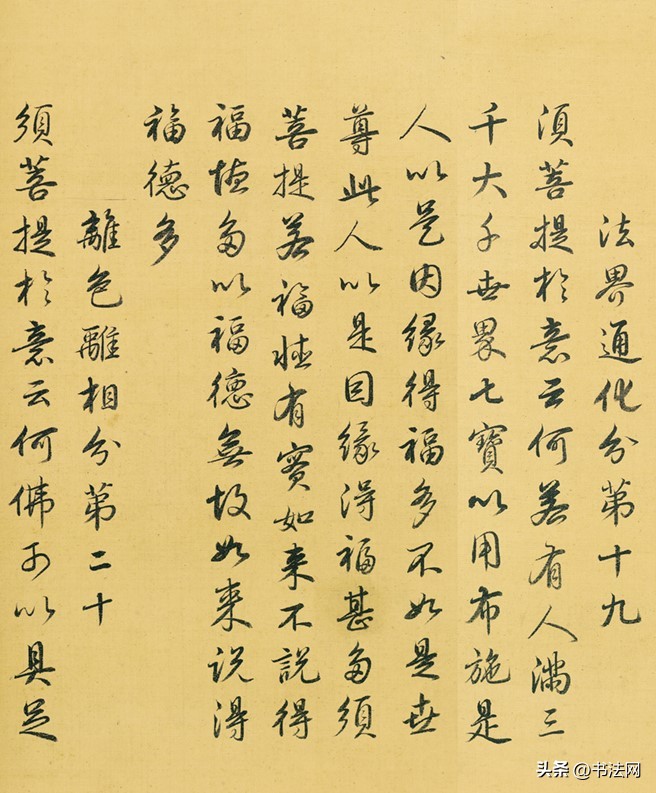 法界通化分第十九
須菩提於意云何若有人滿三
千大千世界七寶以用布施是
人以是因緣得福多不如是世
尊此人以是因緣得福甚多須
菩提若福德有實如來不說得
福德多以福德無故如來說得
福德多
離色離相分第二十
須菩提於意云何佛可以具足
头条 @书法网